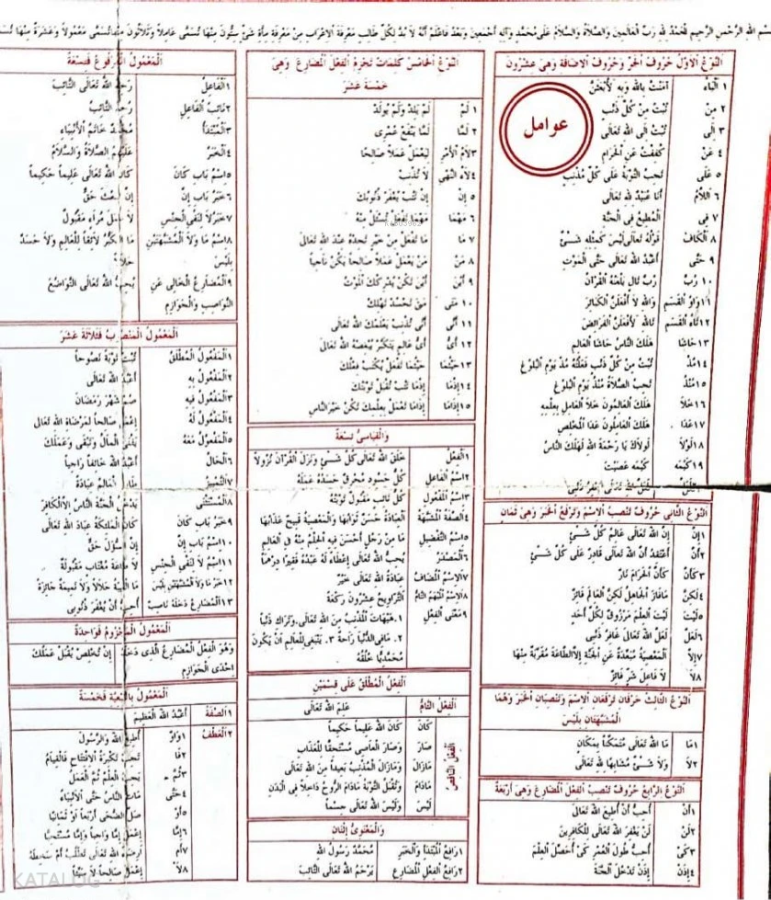 بسم الله الرحمن الرحيم الحمد لله رب العالمين والصلاة والسلام على محمد وآله أجمعين وبعد فاعلم أنه لا بد لكل طالب معرفة الاعراب من معرفة مأة شئ ستون منها تسمى عاملا وثلاثون منها تسمى معمولا وعشرة منها
النوع الاول حروف الجر وحروف الاضافة وهى عشرون
عوامل
١ الباء آمنت بالله وبه لأبعثن
٢ من تبت من كل ذنب
٣ الى تبت الى الله تعالى
٤ عن كففت عن الحرام
٥ على تجب التوبة على كل مذنب
٦ اللام أنا عبيد لله تعالى
٧ فى المطيع فى الجنة
٨ الكاف قوله تعالى ليس كمثله شئ
٩ حتى أعبد الله تعالى حتى الموت
١٠ رب رب تال يلعنه القرآن
١١ واو القسم والله لا أفعلن الكبائر
١٢ تاء القسم تالله لأفعلن الفرائض
١٣ حاشا هلك الناس حاشا العالم
١٤ مذ تبت من كل ذنب فعلته مذ يوم البلوغ
١٥ منذ تجب الصلاة منذ يوم البلوغ
١٦ خلا هلك العالمون خلا العامل بعلمه
١٧ عدا هلك العاملون عدا المخلص
١٨ لولا لولاك يا رحمة الله لهلك الناس
١٩ كيمه كيمه عصيت
النوع الثانى حروف تنصب الاسم وترفع الخبر وهى ثمان
١ إن إن الله تعالى عالم كل شئ
٢ أن أعتقد أن الله تعالى قادر على كل شئ
٣ كأن كأن الحرام نار
٤ لكن مافاز الجاهل لكن العالم فائز
٥ ليت ليت العلم مرزوق لكل أحد
٦ لعل لعل الله تعالى غافر ذنبى
٧ إلا المعصية مبعدة عن الجنة إلا الطاعة مقربة منها
٨ لا لا فاعل شر فائز
النوع الثالث حرفان ترفعان الاسم وتنصبان الخبر وهما
المشبهتان بليس
١ ما ما الله تعالى متمكنا بمكان
٢ لا ولا شئ مشابها لله تعالى
النوع الرابع حروف تنصب الفعل المضارع وهى أربعة
١ أن أحب أن أطيع الله تعالى
٢ لن لن يغفر الله تعالى للكافرين
٣ كى أحب طول العمر كى أحصل العلم
٤ إذن إذن تدخل الجنة
النوع الخامس كلمات تجزم الفعل المضارع وهى
خمسة عشر
١ لم لم يلد ولم يولد
٢ لما لما ينفع عمرى
٣ لام الأمر ليعمل عملا صالحا
٤ لاء النهى لا تذنب
٥ إن إن تتب يغفر ذنوبك
٦ مهما مهما تفعل تسئل عنه
٧ ما ما تفعل من خير تجده عند الله تعالى
٨ من من يعمل عملا صالحا يكن ناجيا
٩ أين أين تكن يدركك الموت
١٠ متى متى تحسد تهلك
١١ أنى أنى تذنب يعلمك الله تعالى
١٢ أى أى عالم يتكبر يبغضه الله تعالى
١٣ حيثما حيثما تفعل يكتب فعلك
١٤ إذما إذما تتب تقبل توبتك
١٥ إذاما إذاما تعمل بعلمك تكن خير الناس
والقياسى تسعة
١ الفعل خلق الله تعالى كل شئ ونزل القرآن نزولا
٢ اسم الفاعل كل حسود محرق حسده عمله
٣ اسم المفعول كل تائب مقبول توبته
٤ الصفة المشبهة العبادة حسن ثوابها والمعصية قبيح عذابها
٥ اسم التفضيل ما من رجل أحسن فيه الحلم منه فى العالم
٦ المصدر يحب الله تعالى إعطاء له عبده فقيرا درهما
٧ الاسم المضاف عبادة الله تعالى خير
٨ الاسم المبهم التام التراويح عشرون ركعة
٩ معنى الفعل ١. هيهات المذنب من الله تعالى. وتراك ذنبا
٢. مافى الدنيا راحة ٣. ينبغى للعالم أن يكون
محمديا خلقه
الفعل المطلق على قسمين
الفعل التام علم الله تعالى
الفعل الناقص
كان كان الله عليما حكيما
صار وصار العاصى مستحقا للعذاب
مازال ومازال المذنب بعيدا من الله تعالى
مادام وتقبل التوبة مادام الروح داخلا فى البدن
ليس وليس الله تعالى جسما
والمعنوى إثنان
١ رافع المبتدأ والخبر محمد رسول الله
٢ رافع الفعل المضارع يرحم الله تعالى التائب
المعمول المرفوع فتسعة
١ الفاعل رحم الله تعالى التائب
٢ نائب الفاعل رحم التائب
٣ المبتدأ محمد خاتم الأنبياء
٤ الخبر عليهم الصلاة والسلام
٥ اسم باب كان كان الله تعالى عليما حكيما
٦ خبر باب إن إن البعث حق
٧ خبر لا لنفى الجنس لا عمل مراء مقبول
٨ اسم ما ولا المشبهتين ما التكبر لائقا للعالم ولا حسد
بليس حلالا
٩ المضارع الخالى عن يحب الله تعالى التواضع
النواصب والجوازم
المعمول المنصوب فثلاثة عشر
١ المفعول المطلق تبت توبة نصوحا
٢ المفعول به أعبد الله تعالى
٣ المفعول فيه صم شهر رمضان
٤ المفعول له إعمل صالحا لمرضاة الله تعالى
٥ المفعول معه يفنى المال وتبقى وعملك
٦ الحال أعبد الله خائفا راجيا
٧ التمييز طاب العالم عبادة
٨ المستثنى يدخل الجنة الناس الا الكافر
٩ خبر باب كان كان الملئكة عباد الله تعالى
١٠ اسم باب إن إن السؤل حق
١١ اسم لا لنفى الجنس لا طاعة مغتاب مقبولة
١٢ خبر ما ولا المشبهتين بليس ما الغيبة حلالا ولا نميمة جائزة
١٣ المضارع دخله ناصب أحب أن يغفر ذنوبى
المعمول المجزوم فواحدة
وهو الفعل المضارع الذى دخله إن تخلص يقبل عملك
احدى الجوازم
المعمول بالتبعية فخمسة
١ الصفة أعبد الله العظيم
٢ العطف ١ واو أطيع الله والرسول
٢ فا تجب تكبيرة الافتتاح فالقيام
٣ ثم يجب العلم ثم العمل
٤ حتى مات الناس حتى الأنبياء
٥ أو صل الضحى أربعا أو ثمانيا
٦ إما إعمل إما واجبا وإما مستحبا
٧ أم أرضاء الله تعالى تطلب أم سخطه
٨ لا إعمل صالحا لا سيئا
KATALOG